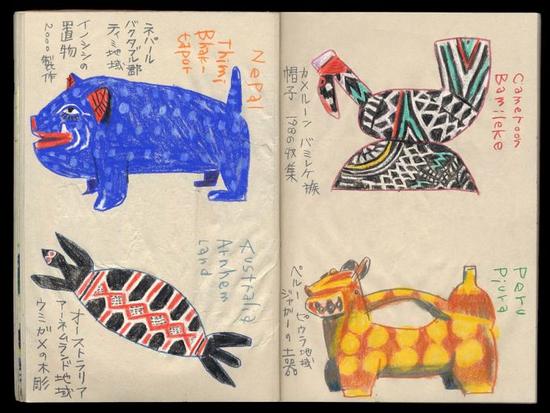 ネパール
バクタプル郡
ティミ地域
イノシシの
置物
2000製作
Nepal
Thimi
Bhak-
tapor
Australia
Arnhem
Land
オーストラリア
アーネムランド地域
ウミガメの木彫
Cameroon
Bamileke
カメルーン バミレケ族
帽子 1986収集
Peru
Piura
ペルー ピウラ地域
ジャガーの土器